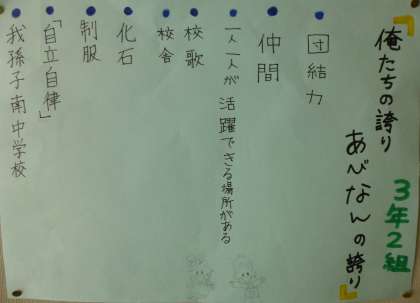 「俺たちの誇り
あびなんの誇り」
3年2組
団結力
仲間
一人一人が活躍できる場所がある
校歌
校舎
化石
制服
「自立自律」
我孫子南中学校